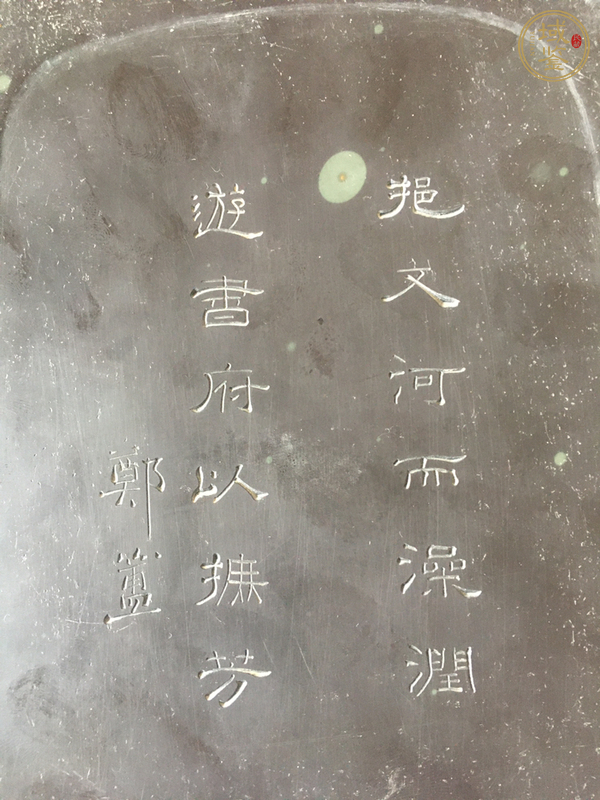 挹文河而澡潤
遊書府以摭芳
鄭簠